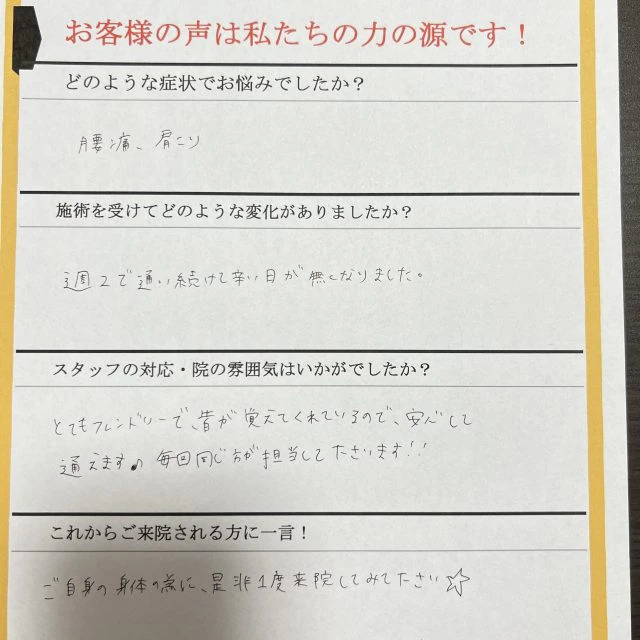 お客様の声は私たちの力の源です！
どのような症状でお悩みでしたか？
腰痛、肩こり
施術を受けてどのような変化がありましたか？
週2で通い続けて辛い日が無くなりました。
スタッフの対応・院の雰囲気はいかがでしたか？
とてもフレンドリーで、皆が覚えてくれているので、安心して
通えます♪ 毎回同じ方が担当して下さいます!!
これからご来院される方に一言！
ご自身の身体の為に、是非1度来院してみて下さい☆